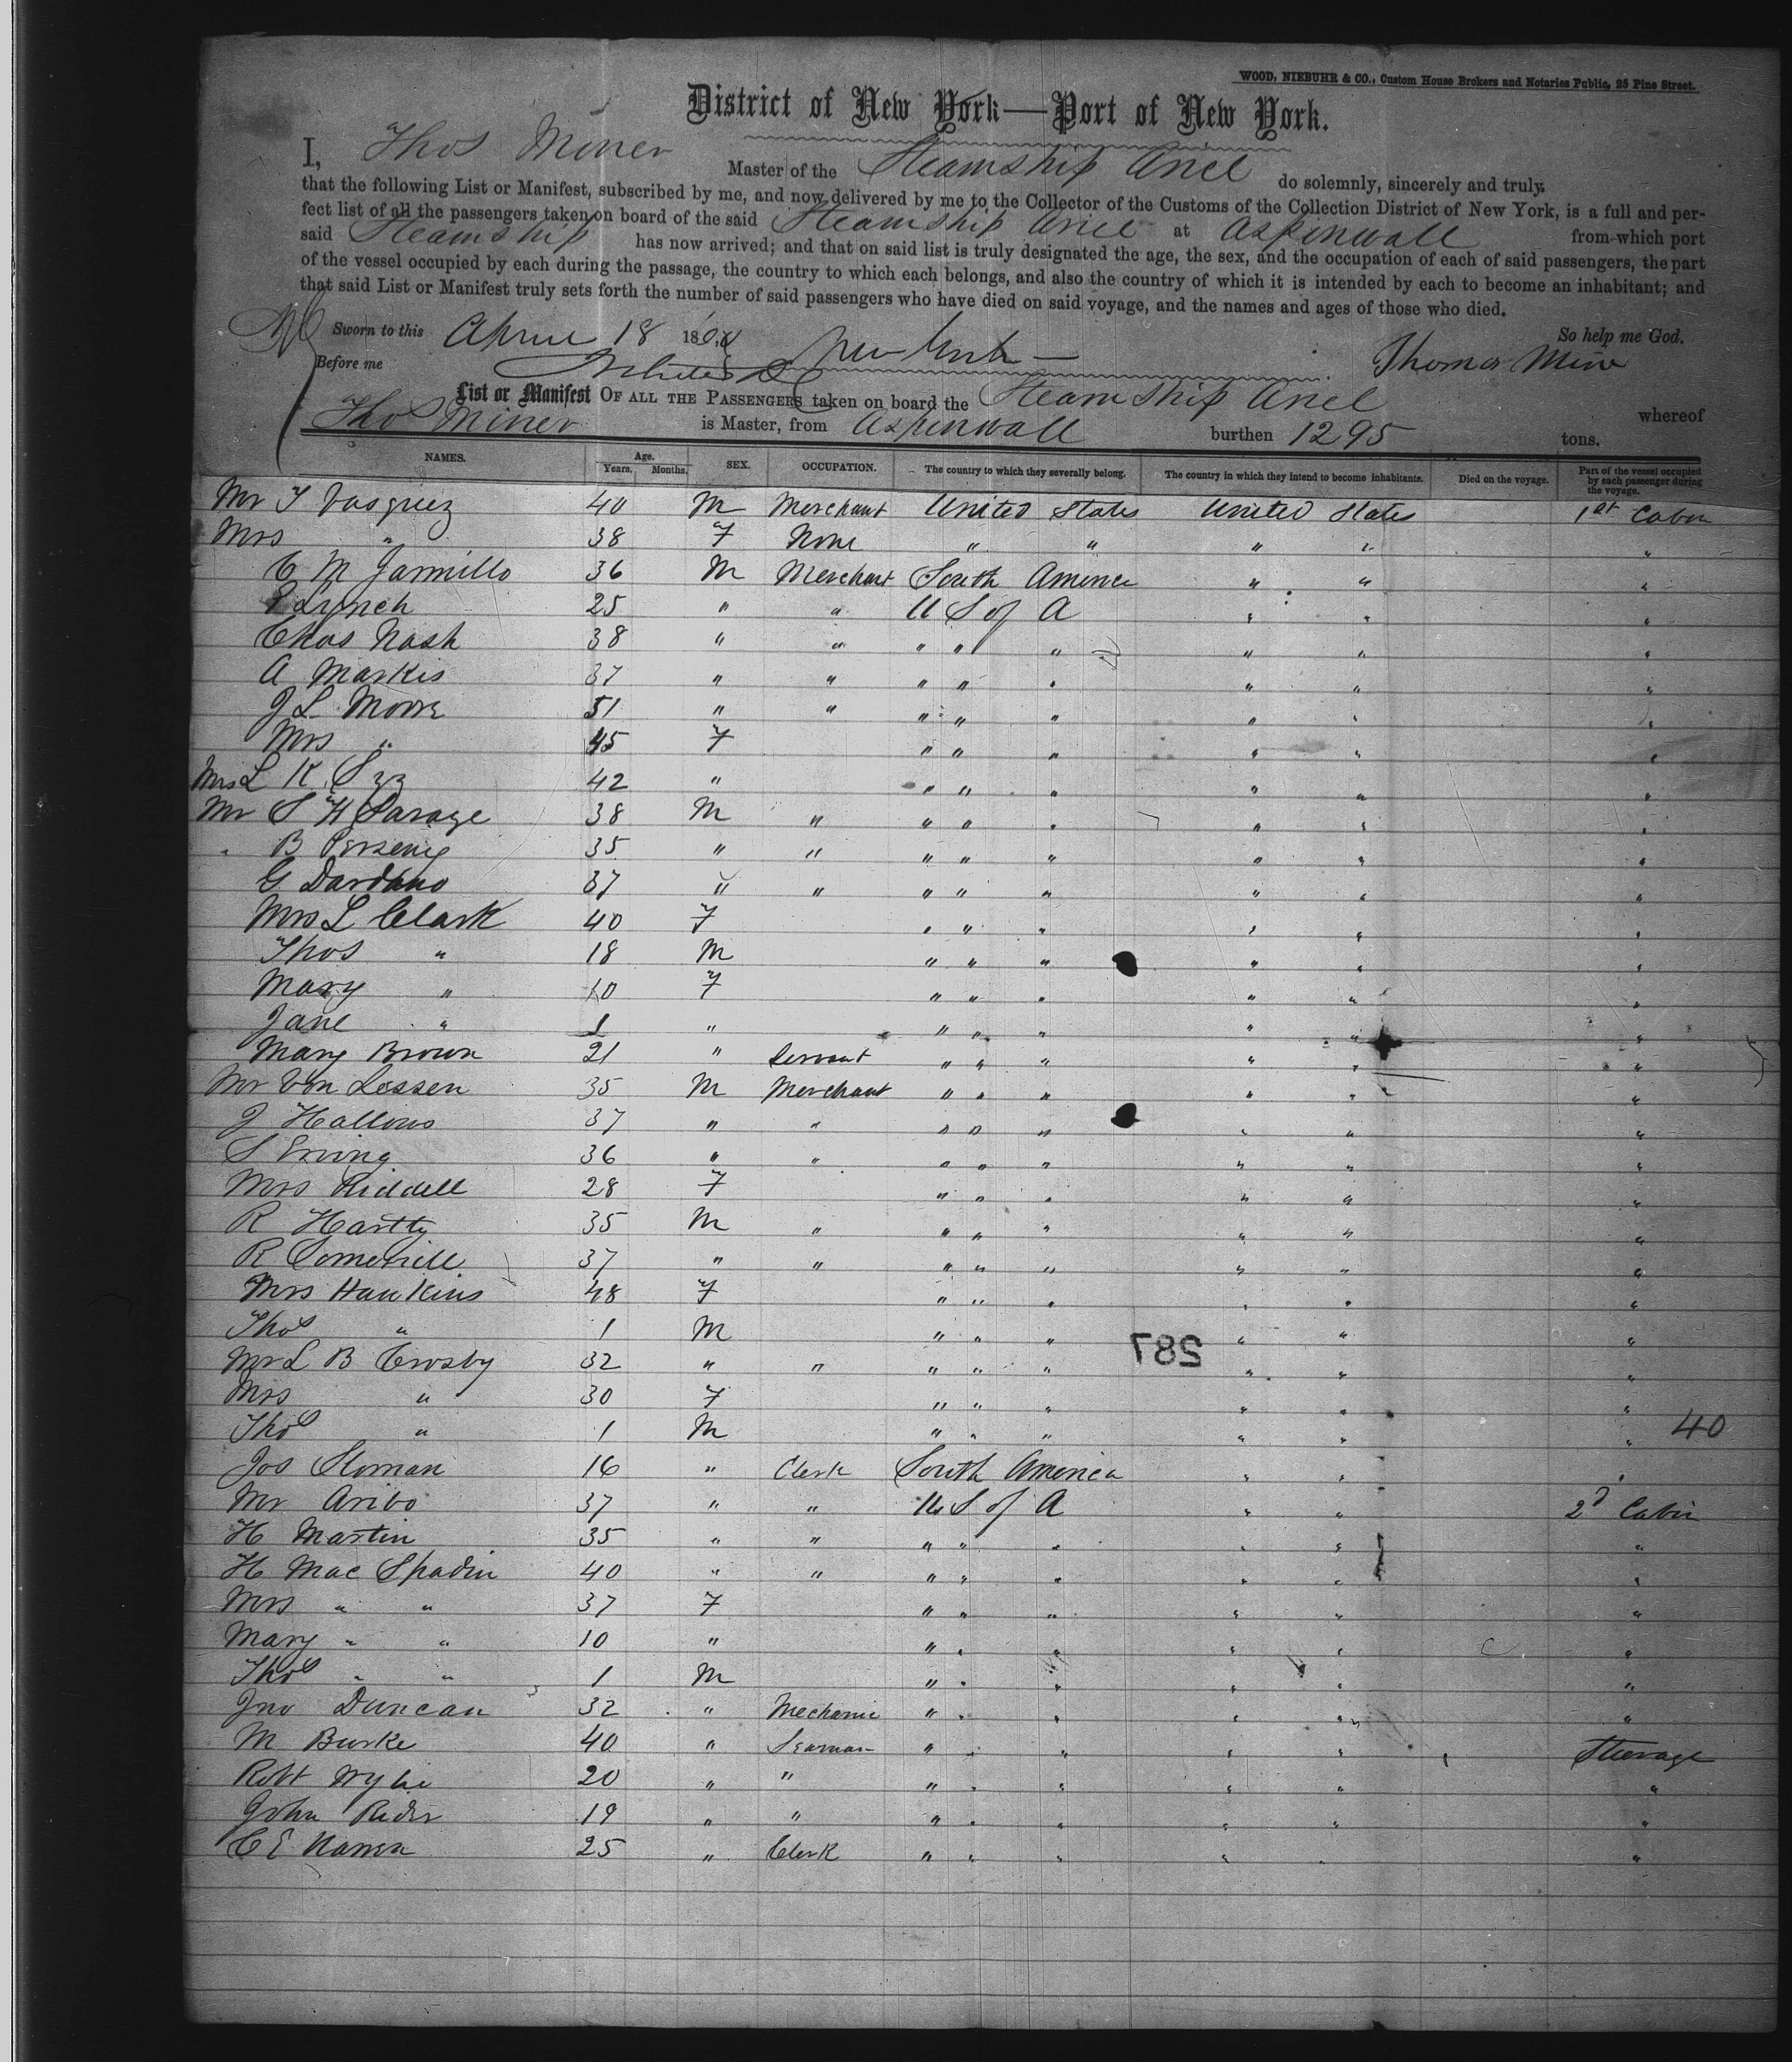 WOOD, NIEBUHR & CO., Custom House Brokers and Notaries Public, 25 Pine Street.
District of New York—Port of New York.
I, Thos Miner Master of the Steamship Ariel do solemnly, sincerely and truly
that the following List or Manifest, subscribed by me, and now delivered by me to the Collector of the Customs of the Collection District of New York, is a full and per-
fect list of all the passengers taken on board of the said Steamship Ariel at Aspinwall from which port
said Steamship has now arrived; and that on said list is truly designated the age, the sex, and the occupation of each of said passengers, the part
of the vessel occupied by each during the passage, the country to which each belongs, and also the country of which it is intended by each to become an inhabitant; and
that said List or Manifest truly sets forth the number of said passengers who have died on said voyage, and the names and ages of those who died.
Sworn to this April 18 186 New York So help me God.
Before me Thomas Miner
List or Manifest OF ALL THE PASSENGERS taken on board the Steam Ship Ariel whereof
Thos Miner is Master, from Aspinwall burthen 1295 tons.
NAMES. Age. Years. Months. SEX. OCCUPATION. The country to which they severally belong. The country in which they intend to become inhabitants. Died on the voyage. Part of the vessel occupied by each passenger during the voyage.
Mr T Vasquez 40 M Merchant United States United States 1st Cabin
Mrs " 38 F None " " " " "
C M Jarmillo 36 M Merchant South America " " "
Lynch 25 " " U S of A " " "
Chas Nash 38 " " " " " " " "
A Markis 37 " " " " " " " "
J L Morse 51 " " " " " " " "
Mrs " 45 F " " " " " "
Mrs L K 42 " " " " " " "
Mr S H Savage 38 M " " " " " " "
" B 35 " " " " " " " "
G Dardano 37 " " " " " " " "
Mrs L Clark 40 F " " " " " "
Thos " 18 M " " " " " "
Mary " 10 F " " " " " "
Jane " 1 " " " " " " "
Mary Brown 21 " Servant " " " " " "
Mr Von Lessen 35 M Merchant " " " " " "
J Hallows 37 " " " " " " " "
S Irving 36 " " " " " " " "
Mrs Riddell 28 F " " " " " "
R Hartty 35 M " " " " " " "
R 37 " " " " " " " "
Mrs Hawkins 48 F " " " " " "
Thos " 1 M " " " " " "
287
Mr L B Crosby 32 " " " " " " " "
Mrs " 30 F " " " " " "
Thos " 1 M " " " " " " 40
Jos Sloman 16 " Clerk South America " " "
Mr Aribo 37 " " U S of A " " 2d Cabin
H Martin 35 " " " " " " " "
H Mac Spadin 40 " " " " " " " "
Mrs " " 37 F " " " " " "
Mary " " 10 " " " " " " "
Thos " " 1 M " " " " " "
Jno Duncan 32 " Mechanic " " " " " "
M Burke 40 " Seaman " " " " " Steerage
Robt Wylie 20 " " " " " " " "
John Rider 19 " " " " " " " "
C E 25 " Clerk " " " " " "